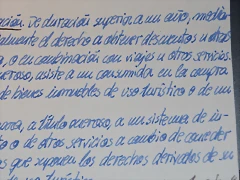 ación. De duración superior a un año, median
almente el derecho a obtener descuentos u otras
a, o en combinación con viajes u otros servicios.
neroso, asiste a un consumidor en la compra
de bienes inmuebles de uso turístico o de un
area, a título oneroso, a un sistema de in-
to o de otros servicios a cambio de conceder
as que suponen los derechos derivados de su